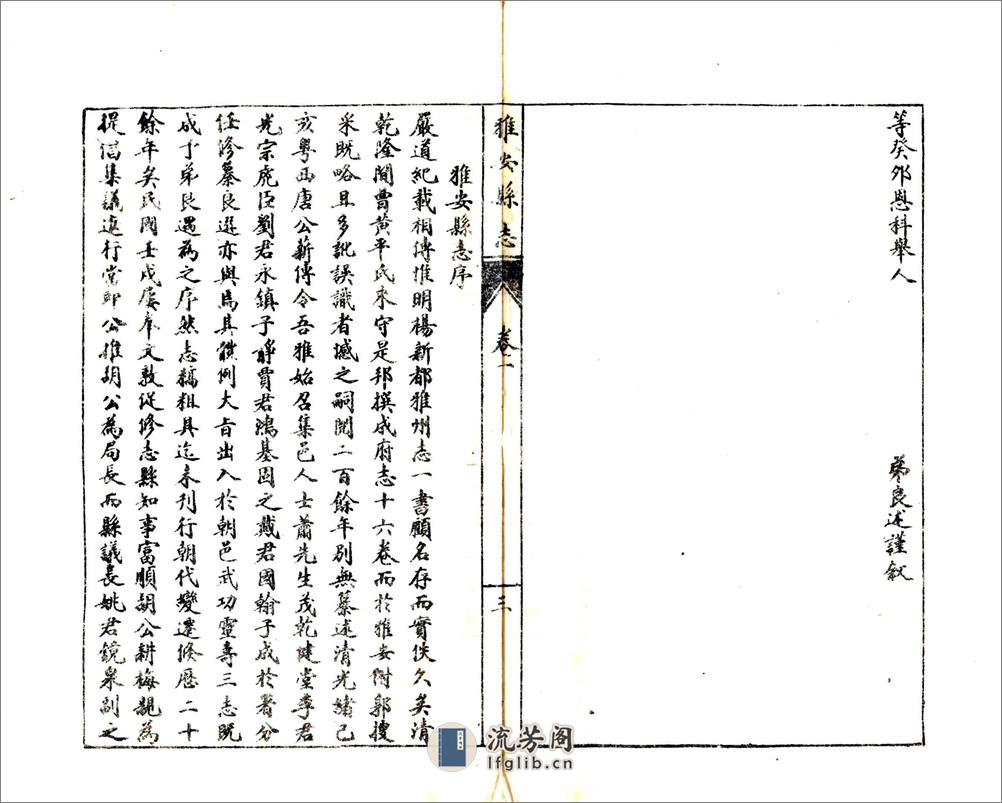 等癸卯恩科舉人
弟良述謹叙
雅安縣志
卷一
三
雅安縣志序
嚴道紀載相傳惟明楊新都雅州志一書顧名存而實佚久矣清
乾隆間曹黄平氏來守是邦撰成府志十六卷而於雅安附郭搜
采既略且多訛誤識者憾之嗣閱二百餘年別無纂述清光緒己
亥粤西唐公薪傳令吾雅始召集邑人士蕭先生茂乾健堂李君
光宗虎臣劉君永鎮子靜賈君鴻基固之戴君國翰子成於署分
任修纂良選亦與焉其體例大旨出入於朝邑武功靈壽三志既
成予弟良遇為之序然志稿粗具迄未刊行朝代變遷倏歷二十
餘年矣民國壬戌屢奉文敦促修志縣知事富順胡公耕梅親為
提倡集議進行當即公推胡公為局長而縣議長姚君鏡泉副之
流芳阁
lfglib.cn